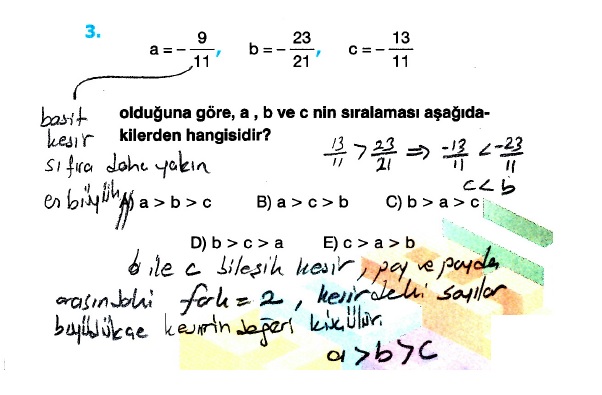 3.
a = - 9/11, b = - 23/21, c = - 13/11
basit
kesir
olduğuna göre, a , b ve c nin sıralaması aşağıda-
kilerden hangisidir?
13/11 > 23/21 ⇒ -13/11 < -23/11
c < b
sıfıra daha yakın
en büyük
A) a > b > c B) a > c > b C) b > a > c
D) b > c > a E) c > a > b
b ile c bileşik kesir, pay ve payda
arasındaki fark = 2, kesirdeki sayılar
büyüdükçe kesrin değeri küçülür.
a > b > c